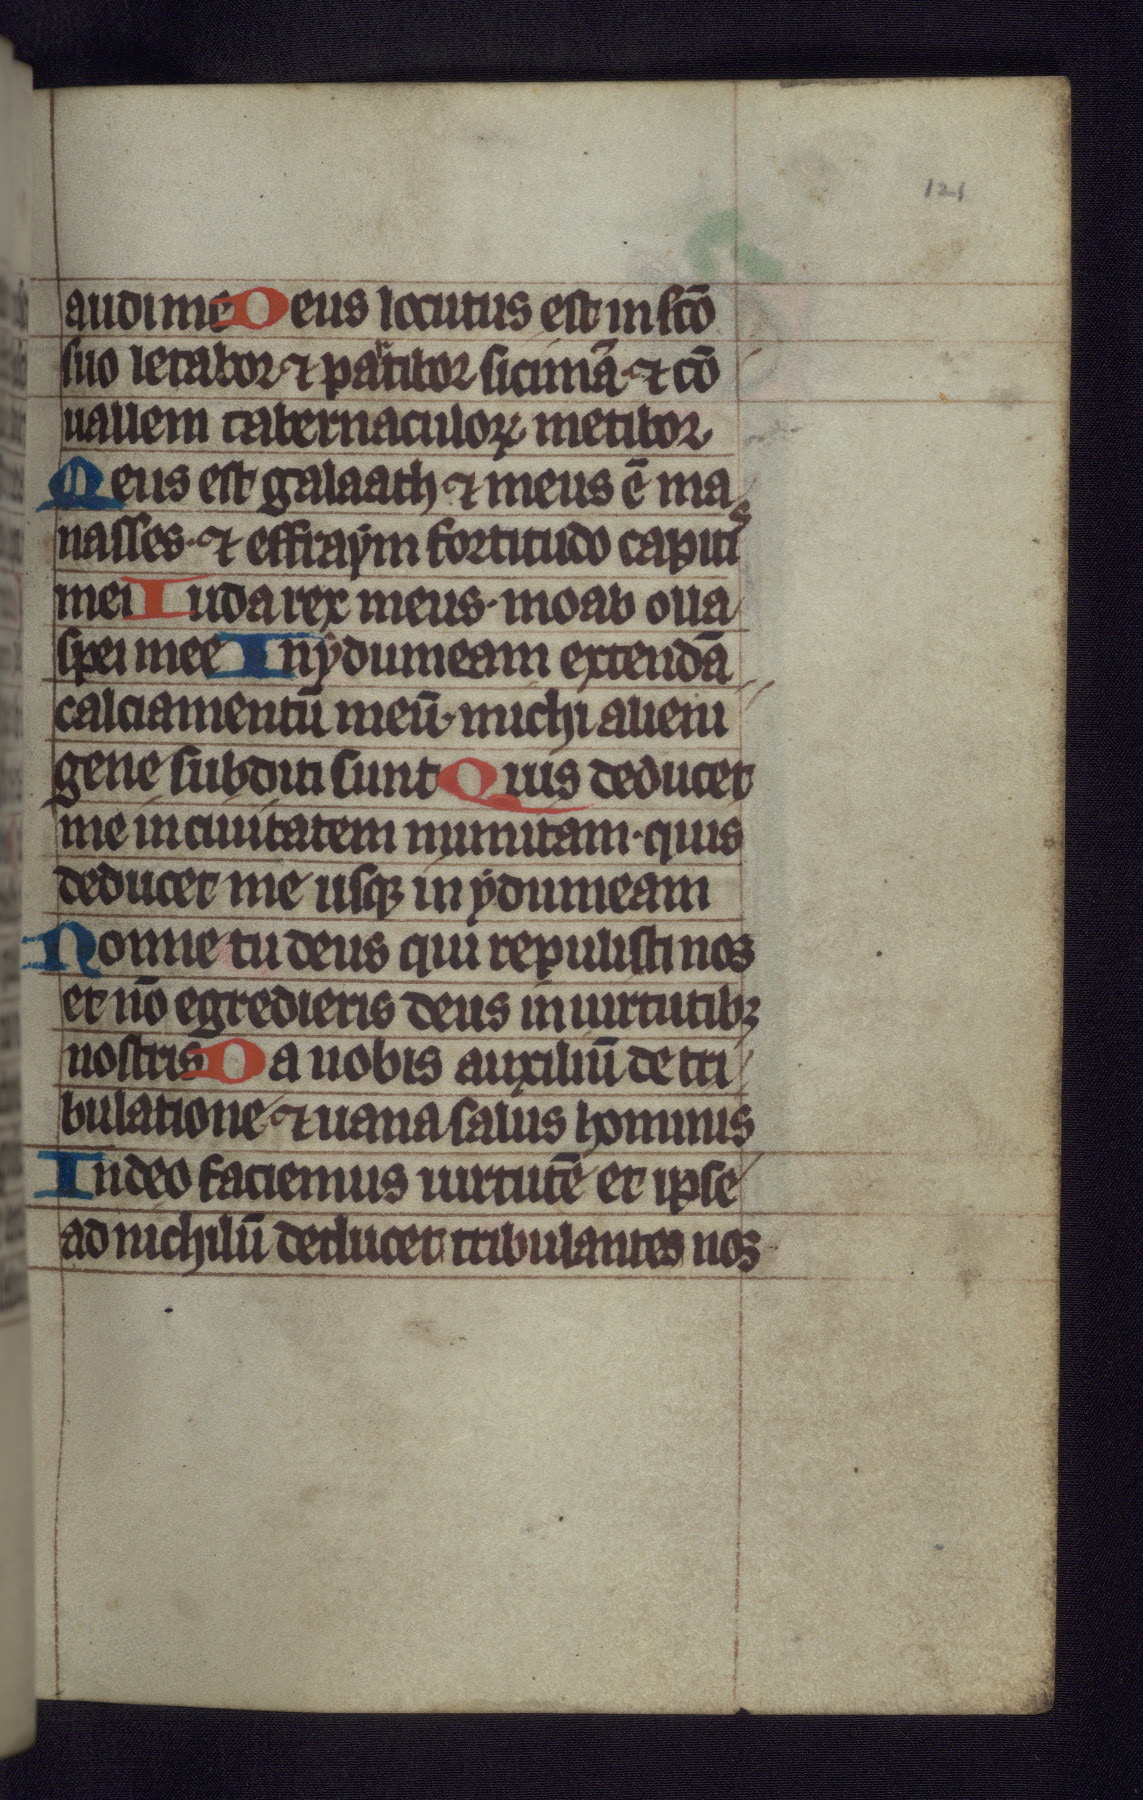 121
audi me Deus locutus est in sc̄o
suo letabor ⁊ partibor sicimā· ⁊ cō
uallem tabernaculoꝝ metibor
Meus est galaath ⁊ meus ē ma
nasses· ⁊ effraẏm fortitudo capitis
mei Iuda rex meus· moab olla
spei mee In ẏdumeam extendā
calciamentū meū· michi alieni
gene subditi sunt Quis deducet
me in ciuitatem munitam· quis
deducet me usqꝫ in ẏdumeam
Nonne tu deus qui repulisti nos
et nō egredieris deus in uirtutibꝫ
nostris Da nobis auxiliū de tri
bulatione ⁊ uana salus hominis
In deo faciemus uirtutē et ipse
ad nichilū deducet tribulantes nos